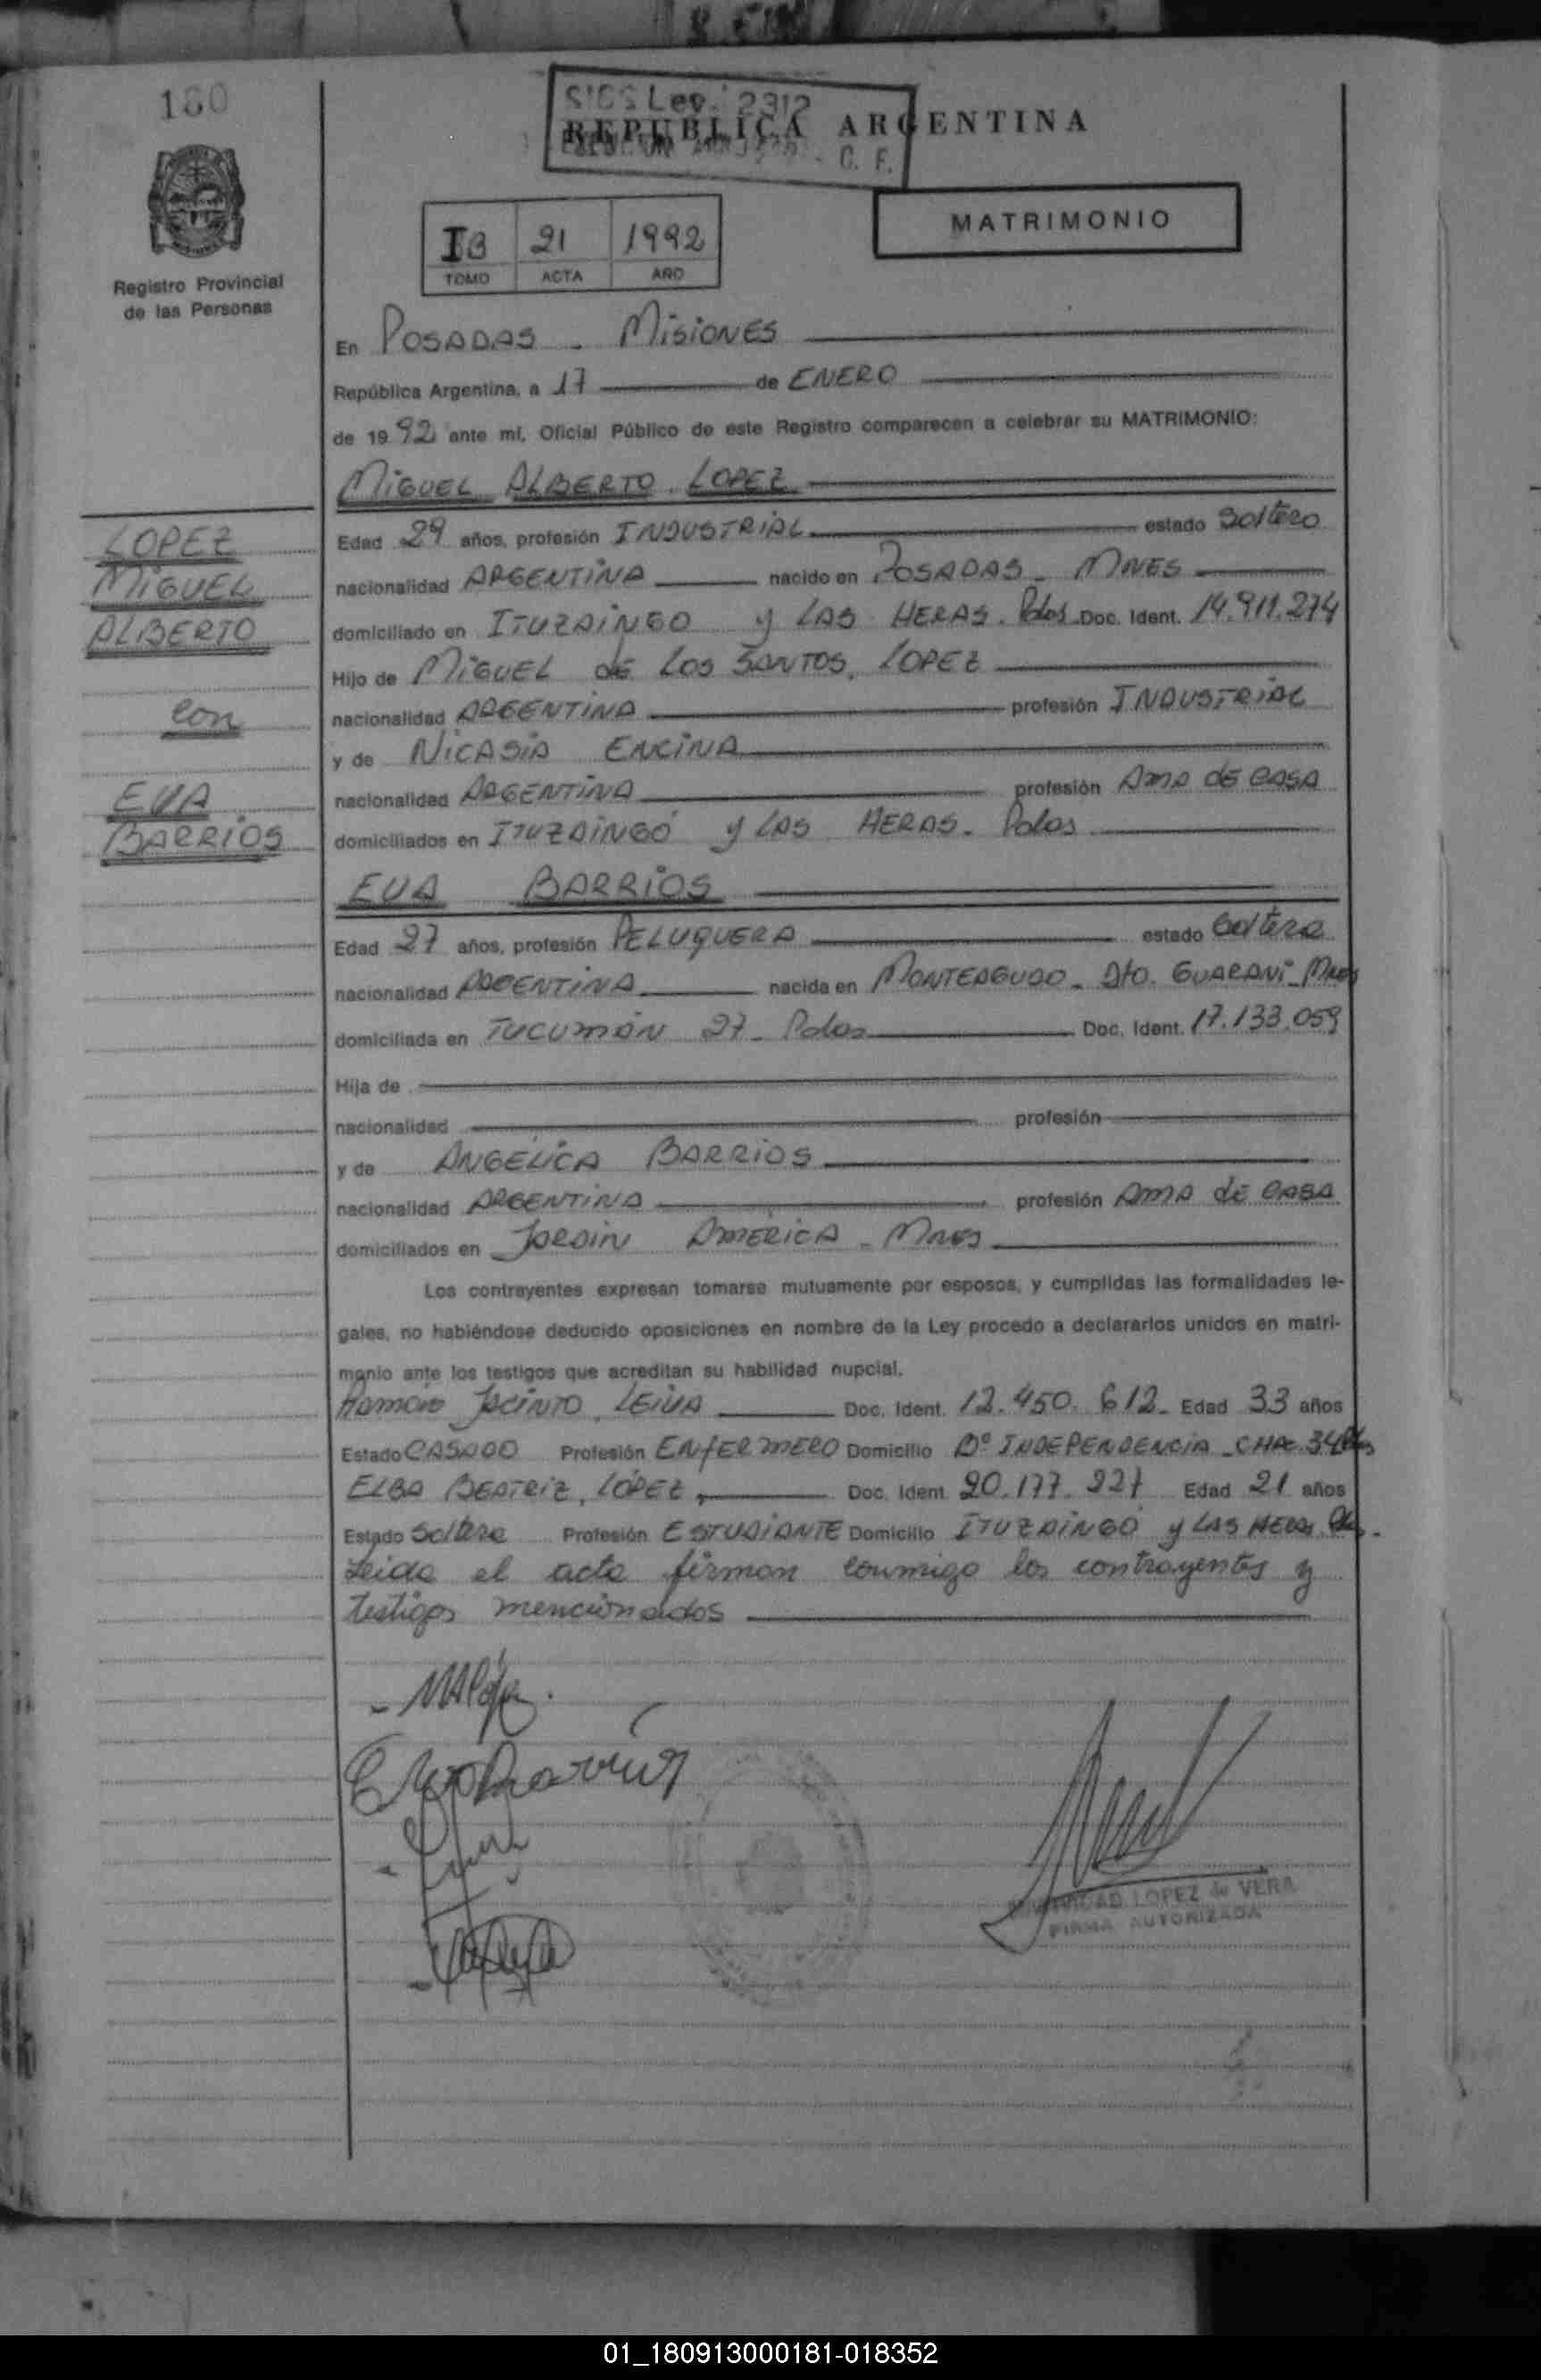 160
REPUBLICA ARGENTINA
C. F.
MATRIMONIO
IB 21 1992
TOMO ACTA AÑO
Registro Provincial
de las Personas
En POSADAS - MISIONES
República Argentina, a 17 de ENERO
de 1992 ante mí, Oficial Público de este Registro comparecen a celebrar su MATRIMONIO:
MIGUEL ALBERTO LOPEZ
LOPEZ
MIGUEL
ALBERTO
con
EVA
BARRIOS
Edad 29 años, profesión INDUSTRIAL estado soltero
nacionalidad ARGENTINA nacido en POSADAS - MNES
domiciliado en ITUZAINGO y LAS HERAS. Pdas Doc. Ident. 14.911.274
Hijo de MIGUEL de LOS SANTOS, LOPEZ
nacionalidad ARGENTINA profesión INDUSTRIAL
y de NICASIA ENCINA
nacionalidad ARGENTINA profesión AMA de CASA
domiciliados en ITUZAINGÓ y LAS HERAS - Pdas
EVA BARRIOS
Edad 27 años, profesión PELUQUERA estado soltera
nacionalidad ARGENTINA nacida en MONTEAGUDO - Dto. GUARANI - Mnes
domiciliada en TUCUMÁN 27 - Pdas Doc. Ident. 17.133.059
Hija de
nacionalidad profesión
y de ANGÉLICA BARRIOS
nacionalidad ARGENTINA profesión AMA de CASA
domiciliados en JARDIN AMÉRICA - Mnes
Los contrayentes expresan tomarse mutuamente por esposos, y cumplidas las formalidades le-
gales, no habiéndose deducido oposiciones en nombre de la Ley procedo a declararlos unidos en matri-
monio ante los testigos que acreditan su habilidad nupcial.
Ramón JACINTO, LEIVA Doc. Ident. 12.450.612 - Edad 33 años
Estado CASADO Profesión ENFERMERO Domicilio Bº INDEPENDENCIA - CHAC. 34
ELBA BEATRIZ, LÓPEZ, Doc. Ident. 20.177.227 Edad 21 años
Estado Soltera Profesión ESTUDIANTE Domicilio ITUZAINGÓ y LAS HERAS
Leida el acta firman conmigo los contrayentes y
testigos mencionados
LOPEZ de VERA
FIRMA AUTORIZADA
01_180913000181-018352